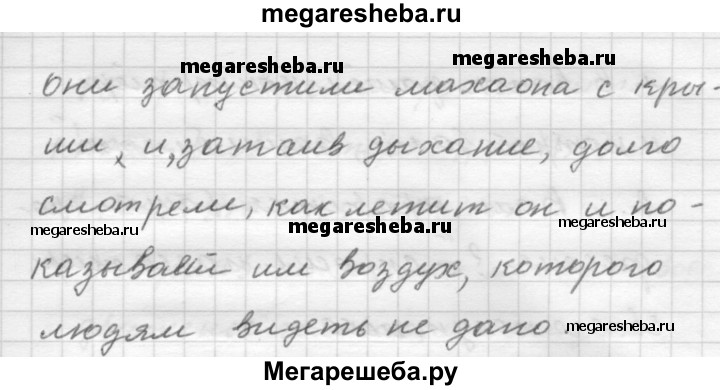 megaresheba.ru
megaresheba.ru megaresheba.ru
они запустили махаона с кры-
ши, и, затаив дыхание, долго
смотрели, как летит он и по-
megaresheba.ru megaresheba.ru megaresheba.ru
казывает им воздух, которого
людям видеть не дано
megaresheba.ru
Мегарешеба.ру